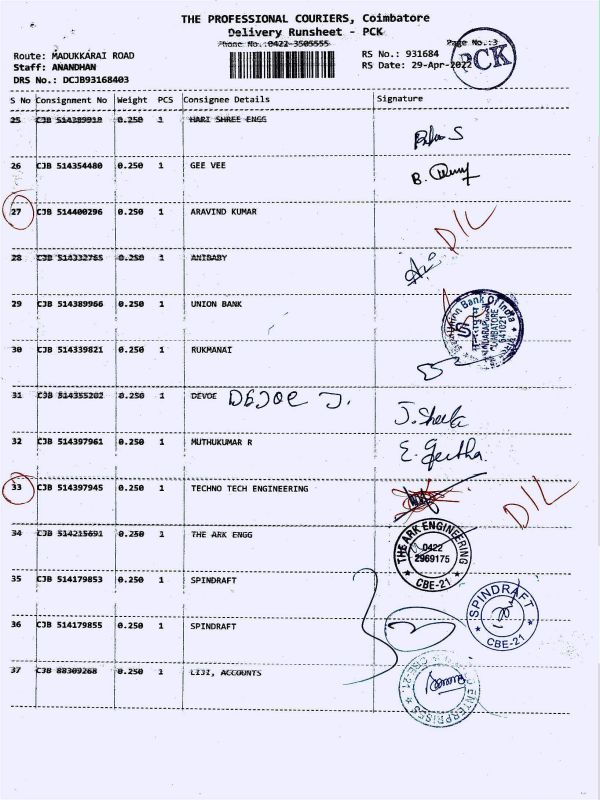 THE PROFESSIONAL COURIERS, Coimbatore
Delivery Runsheet - PCK
Phone No.:0422-3505555
Page No.:3
PCK
Route: MADUKKARAI ROAD
RS No.: 931684
Staff: ANANDHAN
RS Date: 29-Apr-2022
DRS No.: DCJB93168403
S No Consignment No Weight PCS Consignee Details Signature
25 CJB 514389918 0.250 1 HARI SHREE ENGG
26 CJB 514354480 0.250 1 GEE VEE
27 CJB 514400296 0.250 1 ARAVIND KUMAR D/L
28 CJB 514332765 0.250 1 ANIBABY
29 CJB 514389966 0.250 1 UNION BANK
Union Bank Of India
COIMBATORE
641021
30 CJB 514339821 0.250 1 RUKMANAI
31 CJB 514355202 0.250 1 DEVOE DEJOE J. J. Sheela
32 CJB 514397961 0.250 1 MUTHUKUMAR R E. Geetha.
33 CJB 514397945 0.250 1 TECHNO TECH ENGINEERING D/L
34 CJB 514215691 0.250 1 THE ARK ENGG
THE ARK ENGINEERING
0422
2969175
CBE-21
35 CJB 514179853 0.250 1 SPINDRAFT
SPINDRAFT
CBE-21
36 CJB 514179855 0.250 1 SPINDRAFT
37 CJB 88309268 0.250 1 LIJI, ACCOUNTS
ENTERPRISES
CBE-21